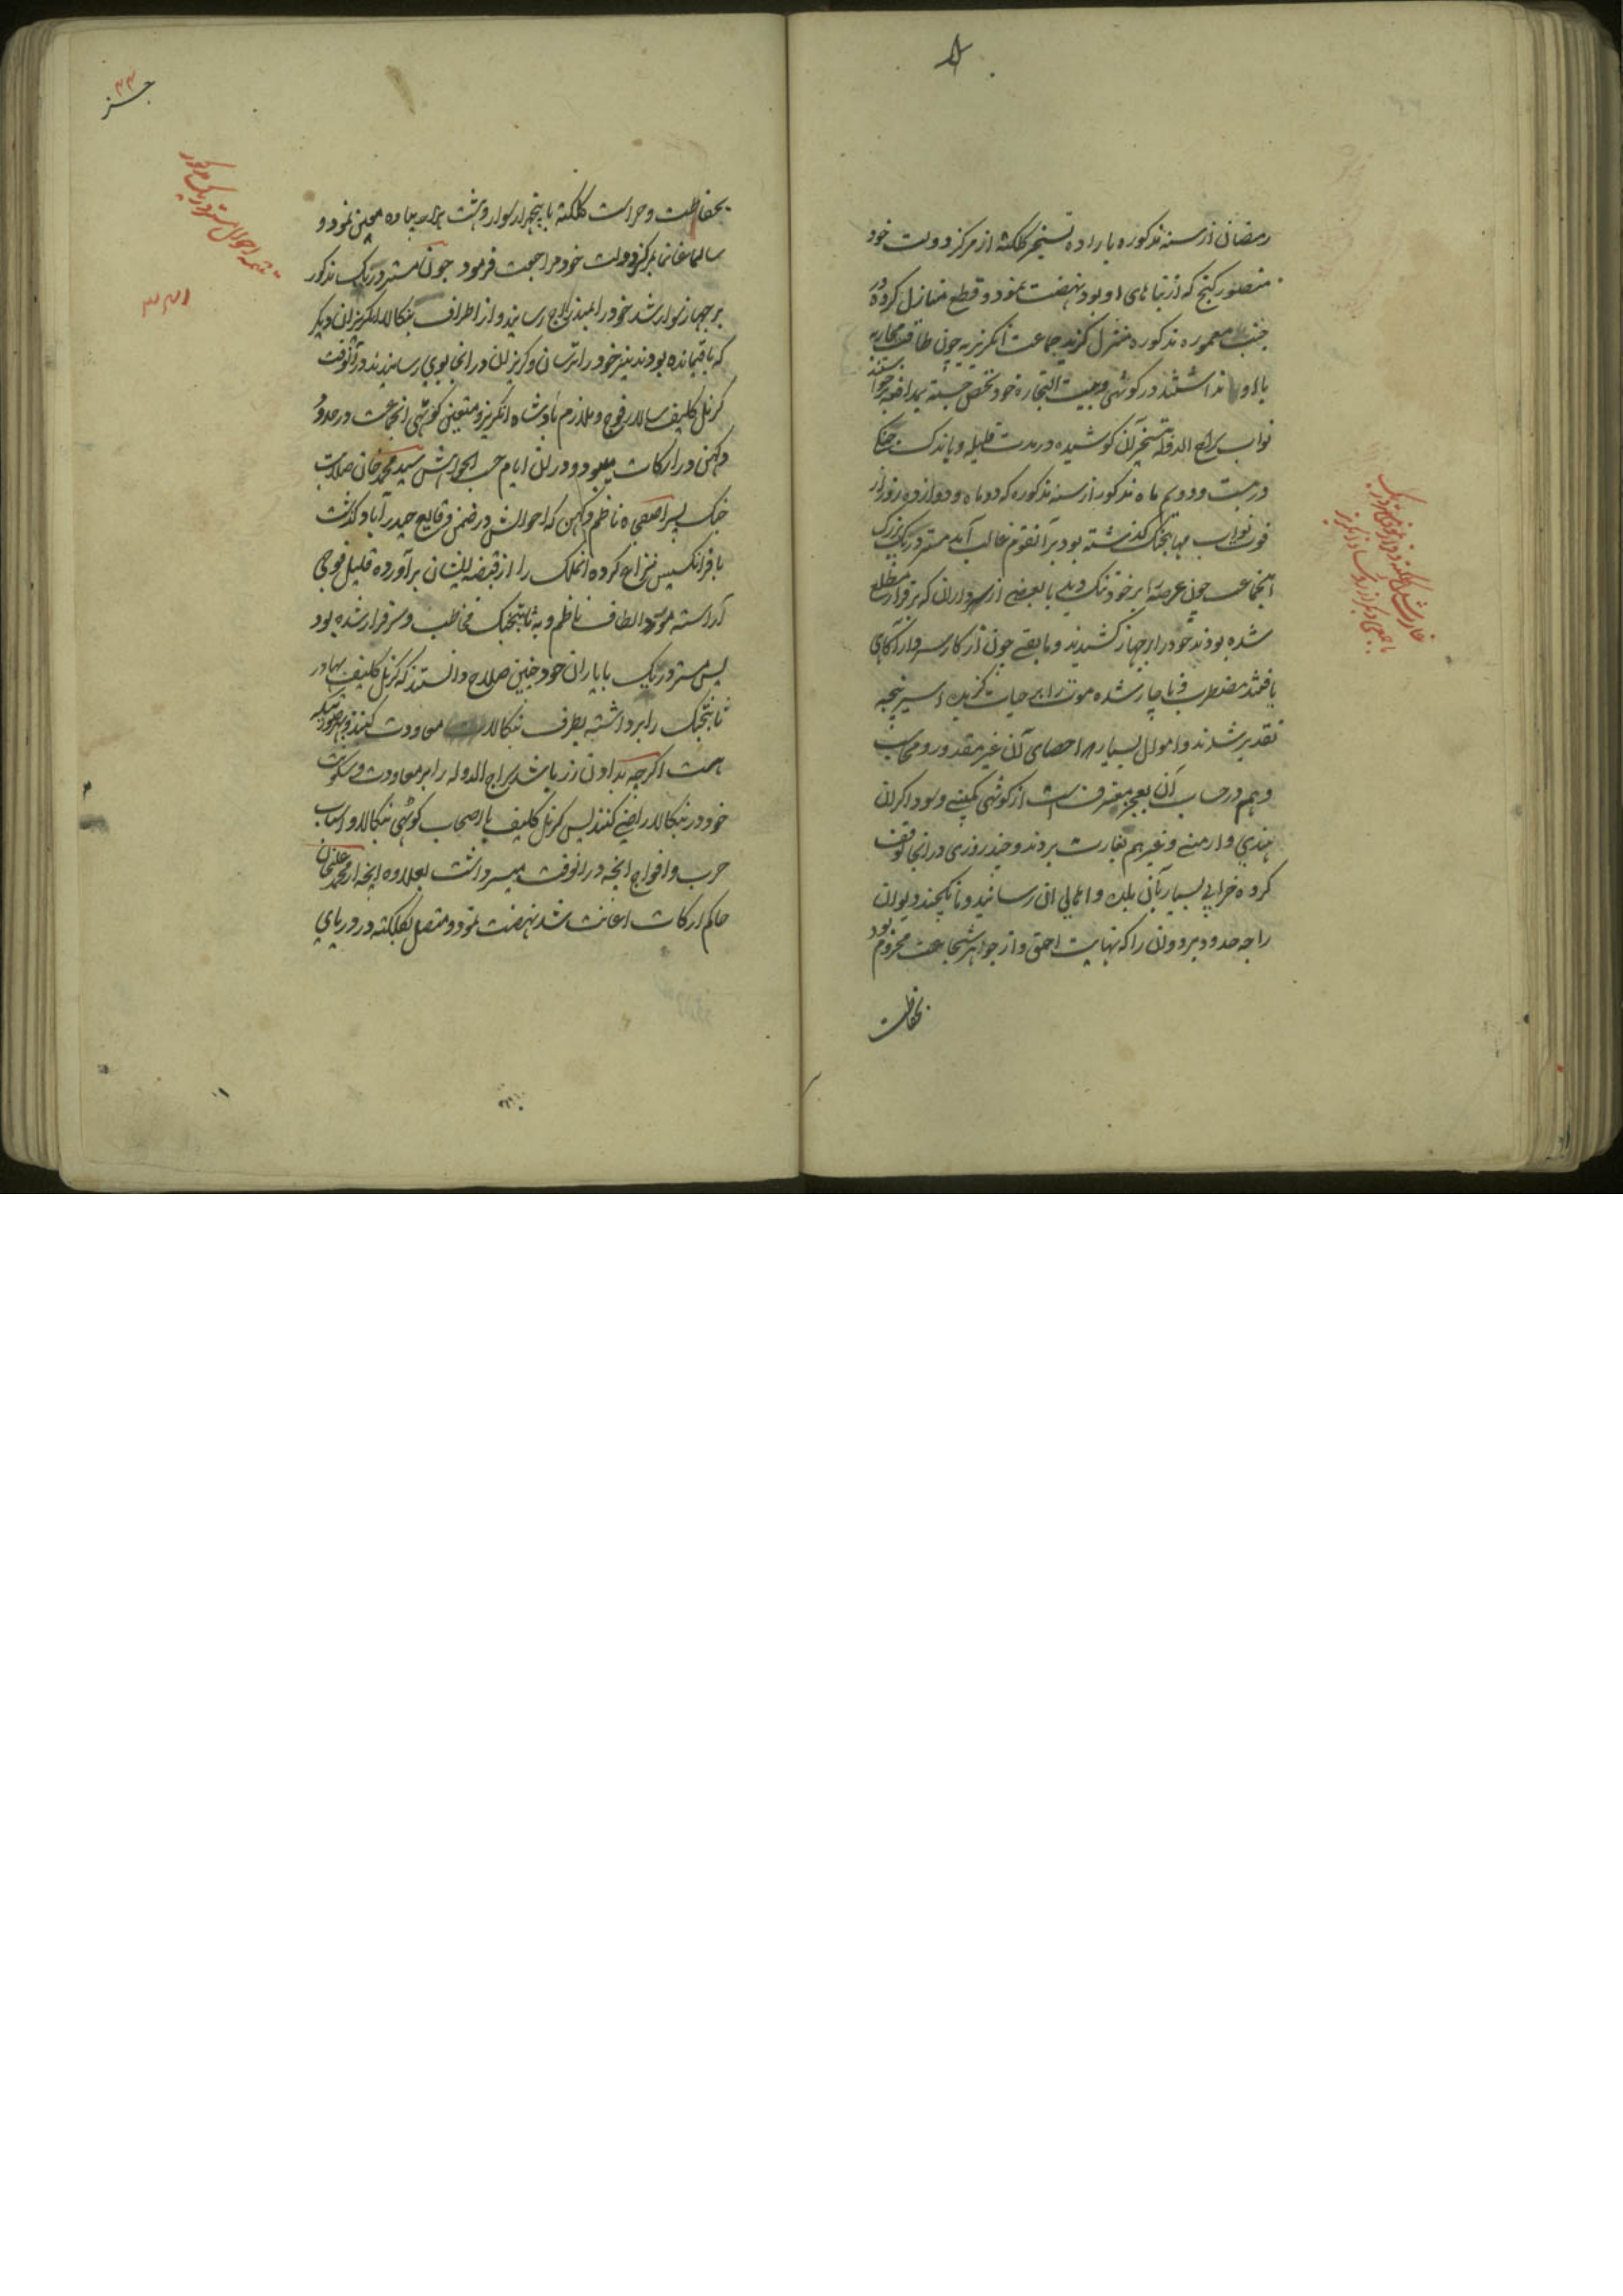 رمضان از سنه مذکوره باراده تسخیر کلکته از مرکز دولت خود
منصور کنج که از بناهای او بود نهضت نمود و قطع منازل کرده در
جنب معموره مذکوره منزل کزید جماعت انکریزیه چون طاقت محاربه
با او نداشتند در کوتهی و بیت التجاره خود تحصن جسته بمدافعه برخواستند
نواب سراج الدوله بتسخیر آن کوشیده در مدت قلیله و باندک جنک
در بیست و دویم ماه مذکور از سنه مذکوره که دو ماه و دوازده روز از
فوت نواب مهابتجنک کذشته بود بر آنقوم غالب آمد مستر دریک بزرک
آنجماعت چون عرصه را بر خود تنک دید با بعضی از سرداران که بر فرار مطلع
شده بودند خود را بر جهاز کشیدند و مابقی چون از کار سردار آکاهی
یافتند مضطرب و ناچار شده موت را بر حیات کزیده اسیر پنجه
تقدیر شدند و اموال بسیار که احصای آن غیر مقدور و محاسب
وهم در حساب آن بعجز معترف است از کوتهی کمپنی و سوداکران
هندی و ارمنی و غیرهم بغارت بردند و چند روزی در انجا توقف
کرده خرابی بسیار بآن بلده و اهالی ان رسانید و مانکچند دیوان
راجه حدود بردوان را که نهایت احمق و از جواهر شجاعت محروم بود
بحفاظت
۳۳
جز
تتمه احوال مستر دریک مذکور
بحفاظت و حراست کلکته با پنجهزار سوار و هشت هزار پیاده معین نمود و
سالما غانما بمرکز دولت خود مراجعت فرمود چون مستر دریک مذکور
بر جهاز سوار شد خود را بمندراج رسانید و از اطراف بنکاله انکریزان دیکر
که باقیمانده بودند نیز خود را ترسان و کریزان در انجا بوی رسانیدند در آنوقت
کرنل کلیف سالار فوج و ملازم پادشاه انکریز و متعین کوتهی انجماعت در حدود
دکهن در ارکات میبود و در ان ایام حسب الخواهش سید محمد خان صلابت
جنک پسر اصفجاه ناظم دکهن که احوالش در ضمن وقایع حیدر آباد کذشت
با فرانسیس نزاع کرده انملک را از قبضه ایشان برآورده قلیل فوجی
آراسته مورد الطاف ناظم و به ثابتجنک مخاطب و سرفراز شده بود
پس مستر دریک با یاران خود چنین صلاح دانستند که کرنل کلیف بهادر
ثابتجنک را برداشته بطرف بنکاله معاودت کنند و بهر صورتیکه
هست اکرچه بدادن زر باشد سراج الدوله را بر معاودت و سکونت
خود در بنکاله راضی کنند پس کرنل کلیف با اصحاب کوتهی بنکاله و اسباب
حرب و افواج انچه در انوقت میسر داشت بعلاوه انچه از محمد علیخان
حاکم ارکات اعانت شد نهضت نمود و متصل بکلکته در دریای